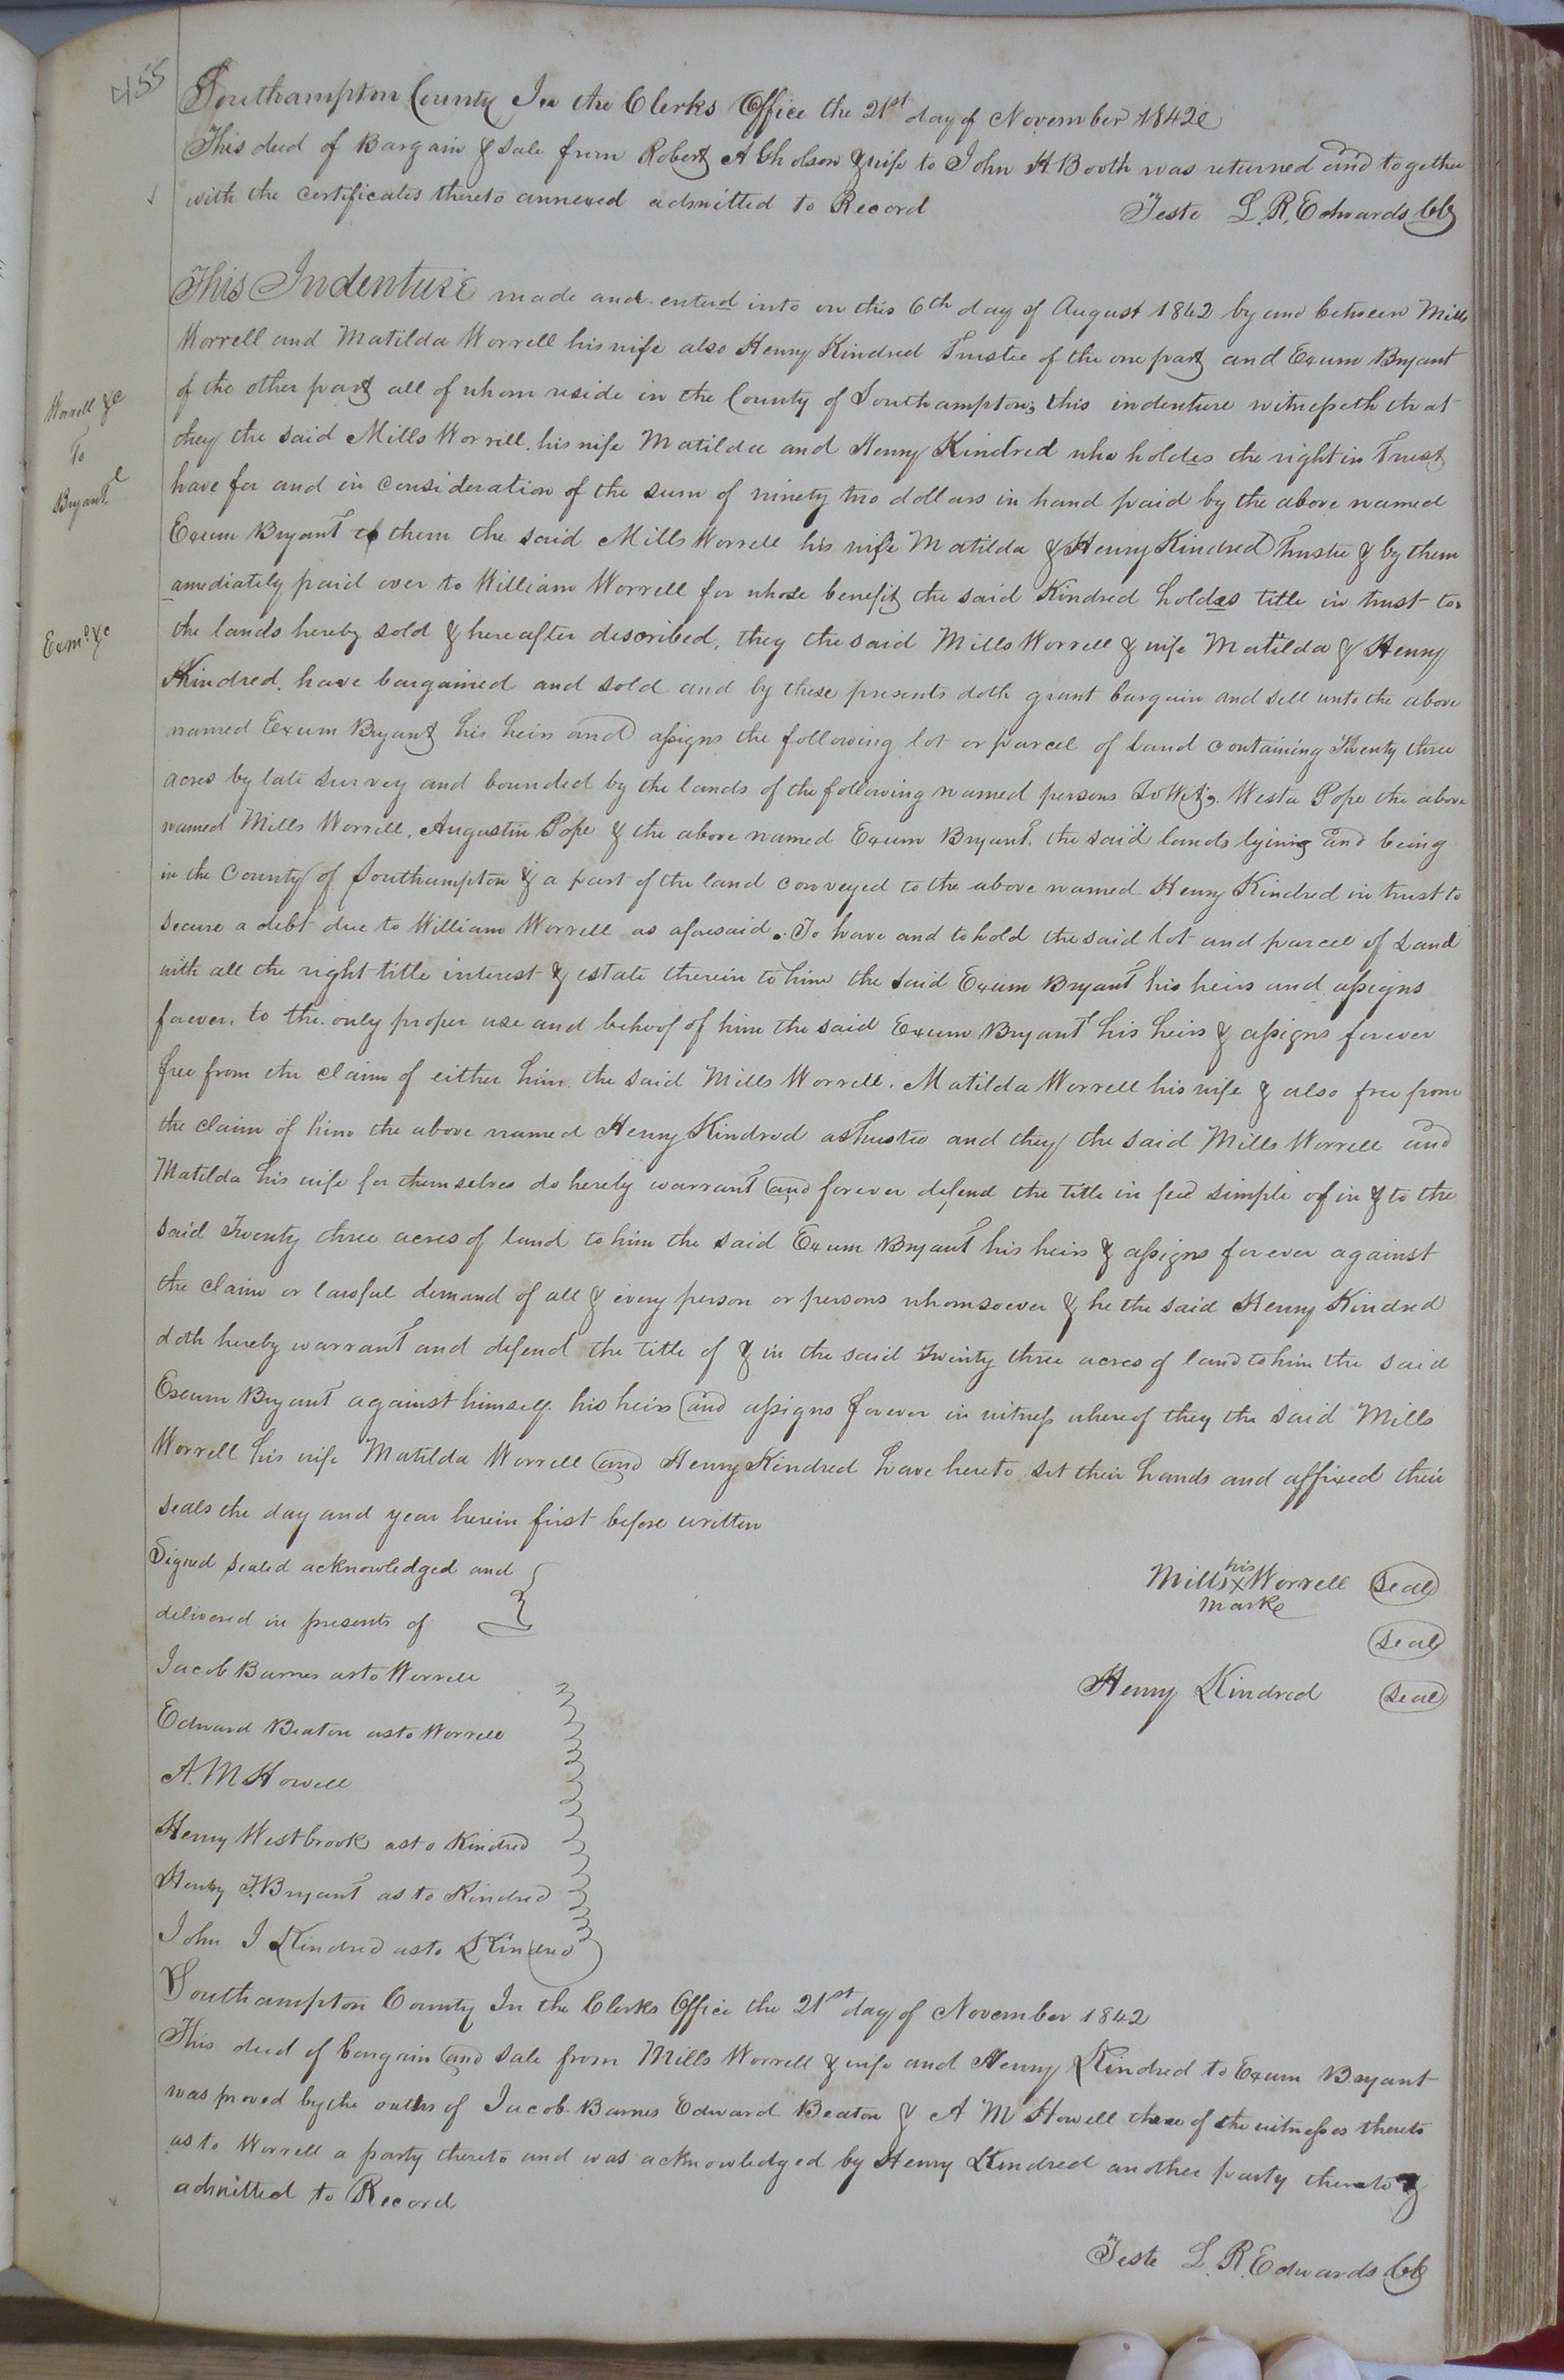 455
Southampton County In the Clerks Office the 21st day of November 1842
This deed of Bargain & Sale from Robert A Gholson & wife to John H Booth was returned and together
with the certificates thereto annexed admitted to Record Teste L. R. Edwards Clk
This Indenture made and enterd into on this 6th day of August 1842 by and between Mills
Worrell and Matilda Worrell his wife also Henry Kindred Trustee of the one part and Exum Bryant
of the other part all of whom reside in the County of Southampton; this indenture witnesseth that
Worrell &c
To
Bryant
they the said Mills Worrell. his wife Matilda and Henry Kindred who holdes the right in Trust
have for and in consideration of the sum of ninety two dollars in hand paid by the above named
Exum Bryant to them the said Mills Worrell his wife Matilda & Henry Kindred Trustee & by them
amediately paid over to William Worrell for whose benefit the said Kindred holdes title in trust to
Exmd &c
the lands hereby sold & hereafter described, they the said Mills Worrell & wife Matilda & Henry
Kindred. have bargained and sold and by these presents doth grant bargain and sell unto the above
named Exum Bryant his heirs and assigns the following lot or parcel of Land containing Twenty three
acres by late survey and bounded by the lands of the following named persons To Wit, Westa Pope the above
named Mills Worrell, Augustin Pope & the above named Exum Bryant. the said lands lying and being
in the County of Southampton & a part of the land conveyed to the above named Henry Kindred in trust to
secure a debt due to William Worrell as aforesaid. To have and to hold the said lot and parcel of Land
with all the right title interest & estate therein to him the said Exum Bryant his heirs and assigns
forever. to the only proper use and behoof of him the said Exum Bryant his heirs & assigns forever
free from the claim of either him the said Mills Worrell. Matilda Worrell his wife & also free from
the claim of him the above named Henry Kindred as Trustee and they the said Mills Worrell and
Matilda his wife for themselves do hereby warrant and forever defend the title in fee simple of in & to the
said Twenty three acres of land to him the said Exum Bryant his heirs & assigns forever against
the claim or lawful demand of all & every person or persons whomsoever & he the said Henry Kindred
doth hereby warrant and defend the title of & in the said Twenty three acres of land to him the said
Exum Bryant against himself his heirs and assigns forever in witness whereof they the said Mills
Worrell his wife Matilda Worrell and Henry Kindred have hereto set their hands and affixed their
seals the day and year herein first before written
Signed sealed acknowledged and
delivered in presents of
Mills his X mark Worrell Seal
Seal
Henry Kindred Seal
Jacob Barnes as to Worrell
Edward Beaton as to Worrell
A. M Howell
Henry Westbrook as to Kindred
Henry F. Bryant as to Kindred
John J Kindred as to Kindred
Southampton County In the Clerks Office the 21st day of November 1842
This deed of bargain and sale from Mills Worrell & wife and Henry Kindred to Exum Bryant
was proved by the oaths of Jacob Barnes Edward Beaton & A M Howell three of the witnesses thereto
as to Worrell a party thereto and was acknowledged by Henry Kindred another party thereto &
admitted to Record
Teste L. R. Edwards Clk